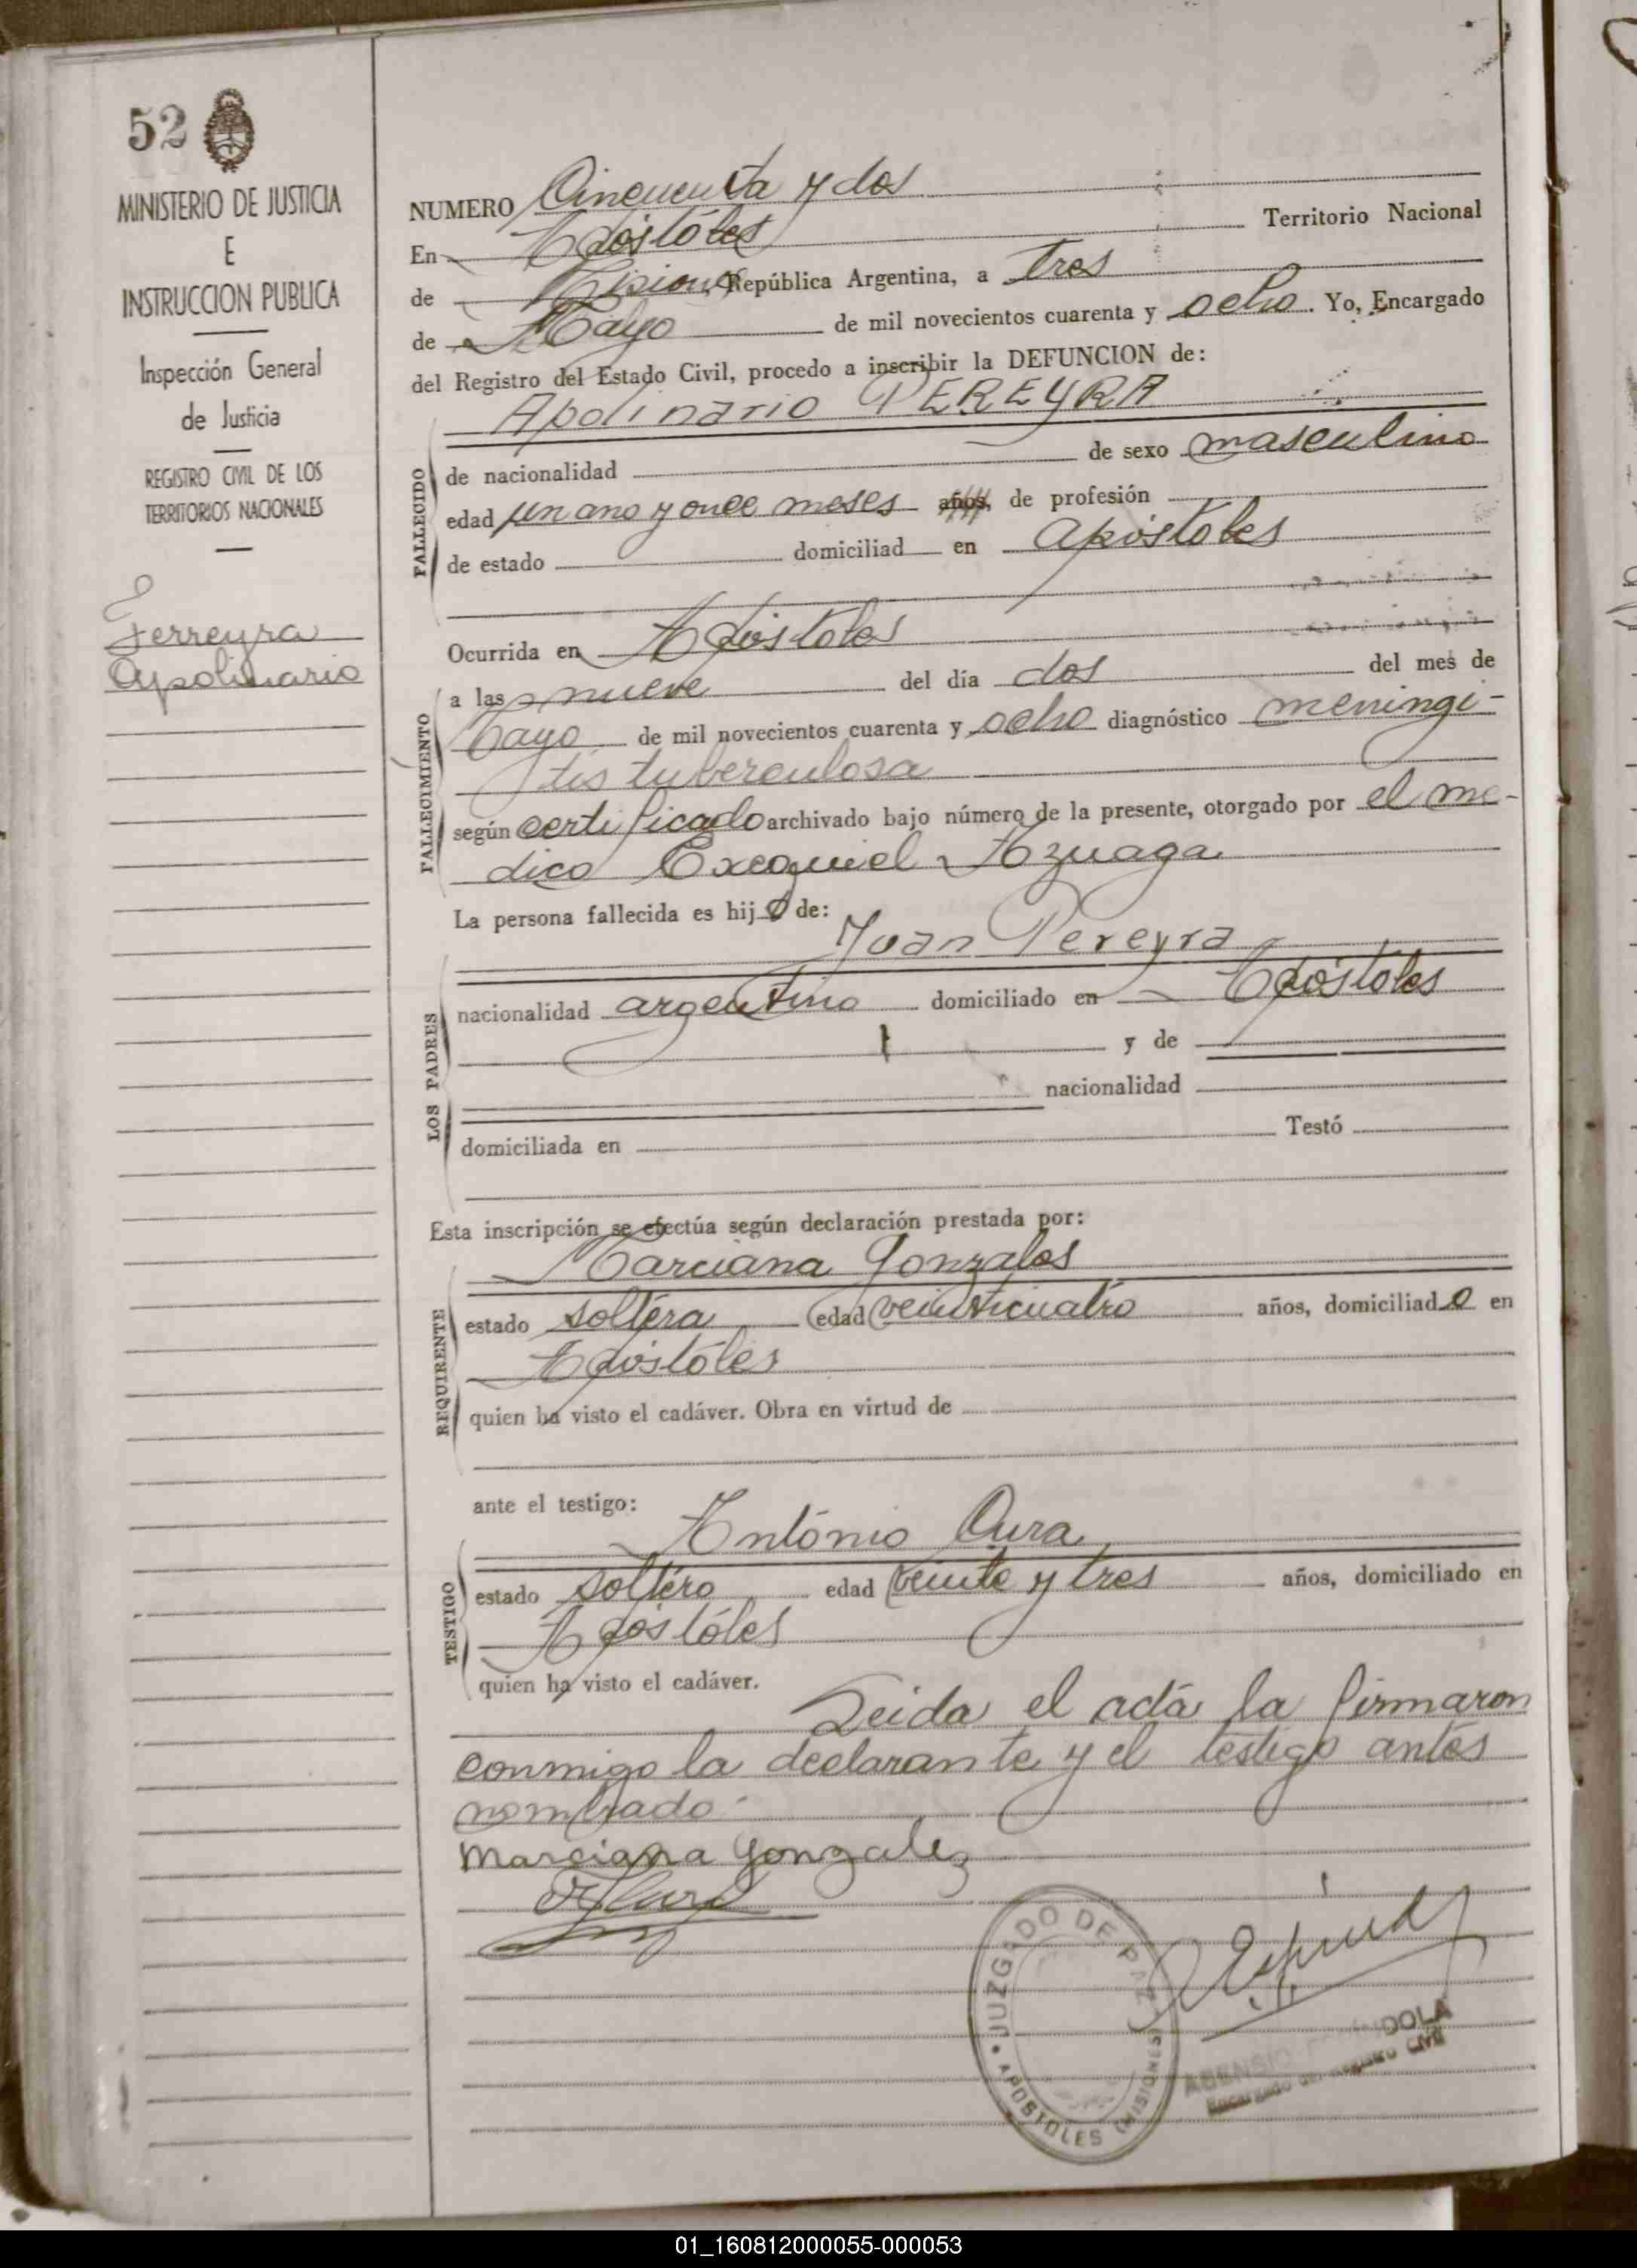 52
MINISTERIO DE JUSTICIA
E
INSTRUCCION PUBLICA
Inspección General
de Justicia
REGISTRO CIVIL DE LOS
TERRITORIOS NACIONALES
Ferreyra
Apolinario
NUMERO Cincuenta y dos
En Apóstóles Territorio Nacional
de Misiones, República Argentina, a tres
de Mayo de mil novecientos cuarenta y ocho. Yo, Encargado
del Registro del Estado Civil, procedo a inscribir la DEFUNCION de:
Apolinario PEREYRA
FALLECIDO
de nacionalidad de sexo masculino
edad un ano y once meses años, de profesión
de estado domiciliad en apóstoles
Ocurrida en Apóstoles
FALLECIMIENTO
a las nueve del día dos del mes de
Mayo de mil novecientos cuarenta y ocho diagnóstico meningi-
tis tuberculosa
según certificado archivado bajo número de la presente, otorgado por el me-
dico Exequiel Azuaga
La persona fallecida es hijo de:
Juan Pereyra
LOS PADRES
nacionalidad argentino domiciliado en Apóstóles
y de
nacionalidad
domiciliada en Testó
Esta inscripción se efectúa según declaración prestada por:
Marciana Gonzales
REQUIRENTE
estado soltéra edad veinticuatro años, domiciliado en
Apóstóles
quien ha visto el cadáver. Obra en virtud de
ante el testigo:
António Cura
TESTIGO
estado soltéro edad veinte y tres años, domiciliado en
Apóstóles
quien ha visto el cadáver.
Leida el acta la firmaron
conmigo la declarante y el testigo antes
nombrado
Marciana Gonzalez
JUZGADO DE PAZ
APOSTOLES (MISIONES)
Encargado del Registro Civil
01_160812000055-000053